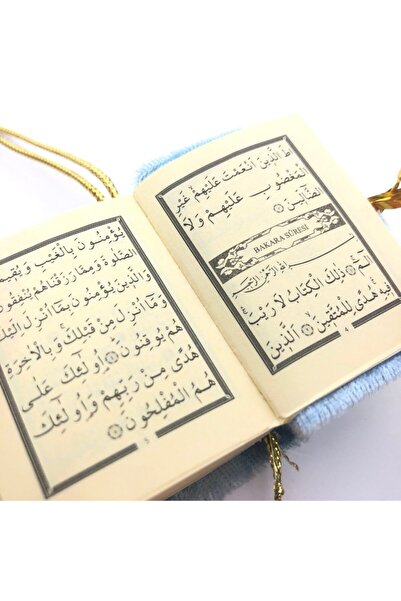 اطَ الَّذ۪ينَ اَنْعَمْتَ عَلَيْهِمْ غَيْرِ
الْمَغْضُوبِ عَلَيْهِمْ وَلَا
الضَّٓالّ۪ينَ ﴿٧﴾
BAKARA SÛRESİ
بِسْمِ اللّٰهِ الرَّحْمٰنِ الرَّح۪يمِ
الٓمٓ ﴿١﴾ ذٰلِكَ الْكِتَابُ لَا رَيْبَۚ
ف۪يهِۚ هُدًى لِلْمُتَّق۪ينَۙ ﴿٢﴾ اَلَّذ۪ينَ
4
يُؤْمِنُونَ بِالْغَيْبِ وَيُق۪يمُ
الصَّلٰوةَ وَمِمَّا رَزَقْنَاهُمْ يُنْفِقُونَ
وَالَّذ۪ينَ يُؤْمِنُونَ بِمَٓا اُنْزِلَ اِلَيْكَ
وَمَٓا اُنْزِلَ مِنْ قَبْلِكَۚ وَبِالْاٰخِرَةِ
هُمْ يُوقِنُونَۜ ﴿٤﴾ اُو۬لٰٓئِكَ عَلٰى
هُدًى مِنْ رَبِّهِمْ وَاُو۬لٰٓئِكَ
هُمُ الْمُفْلِحُونَ ﴿٥﴾
5